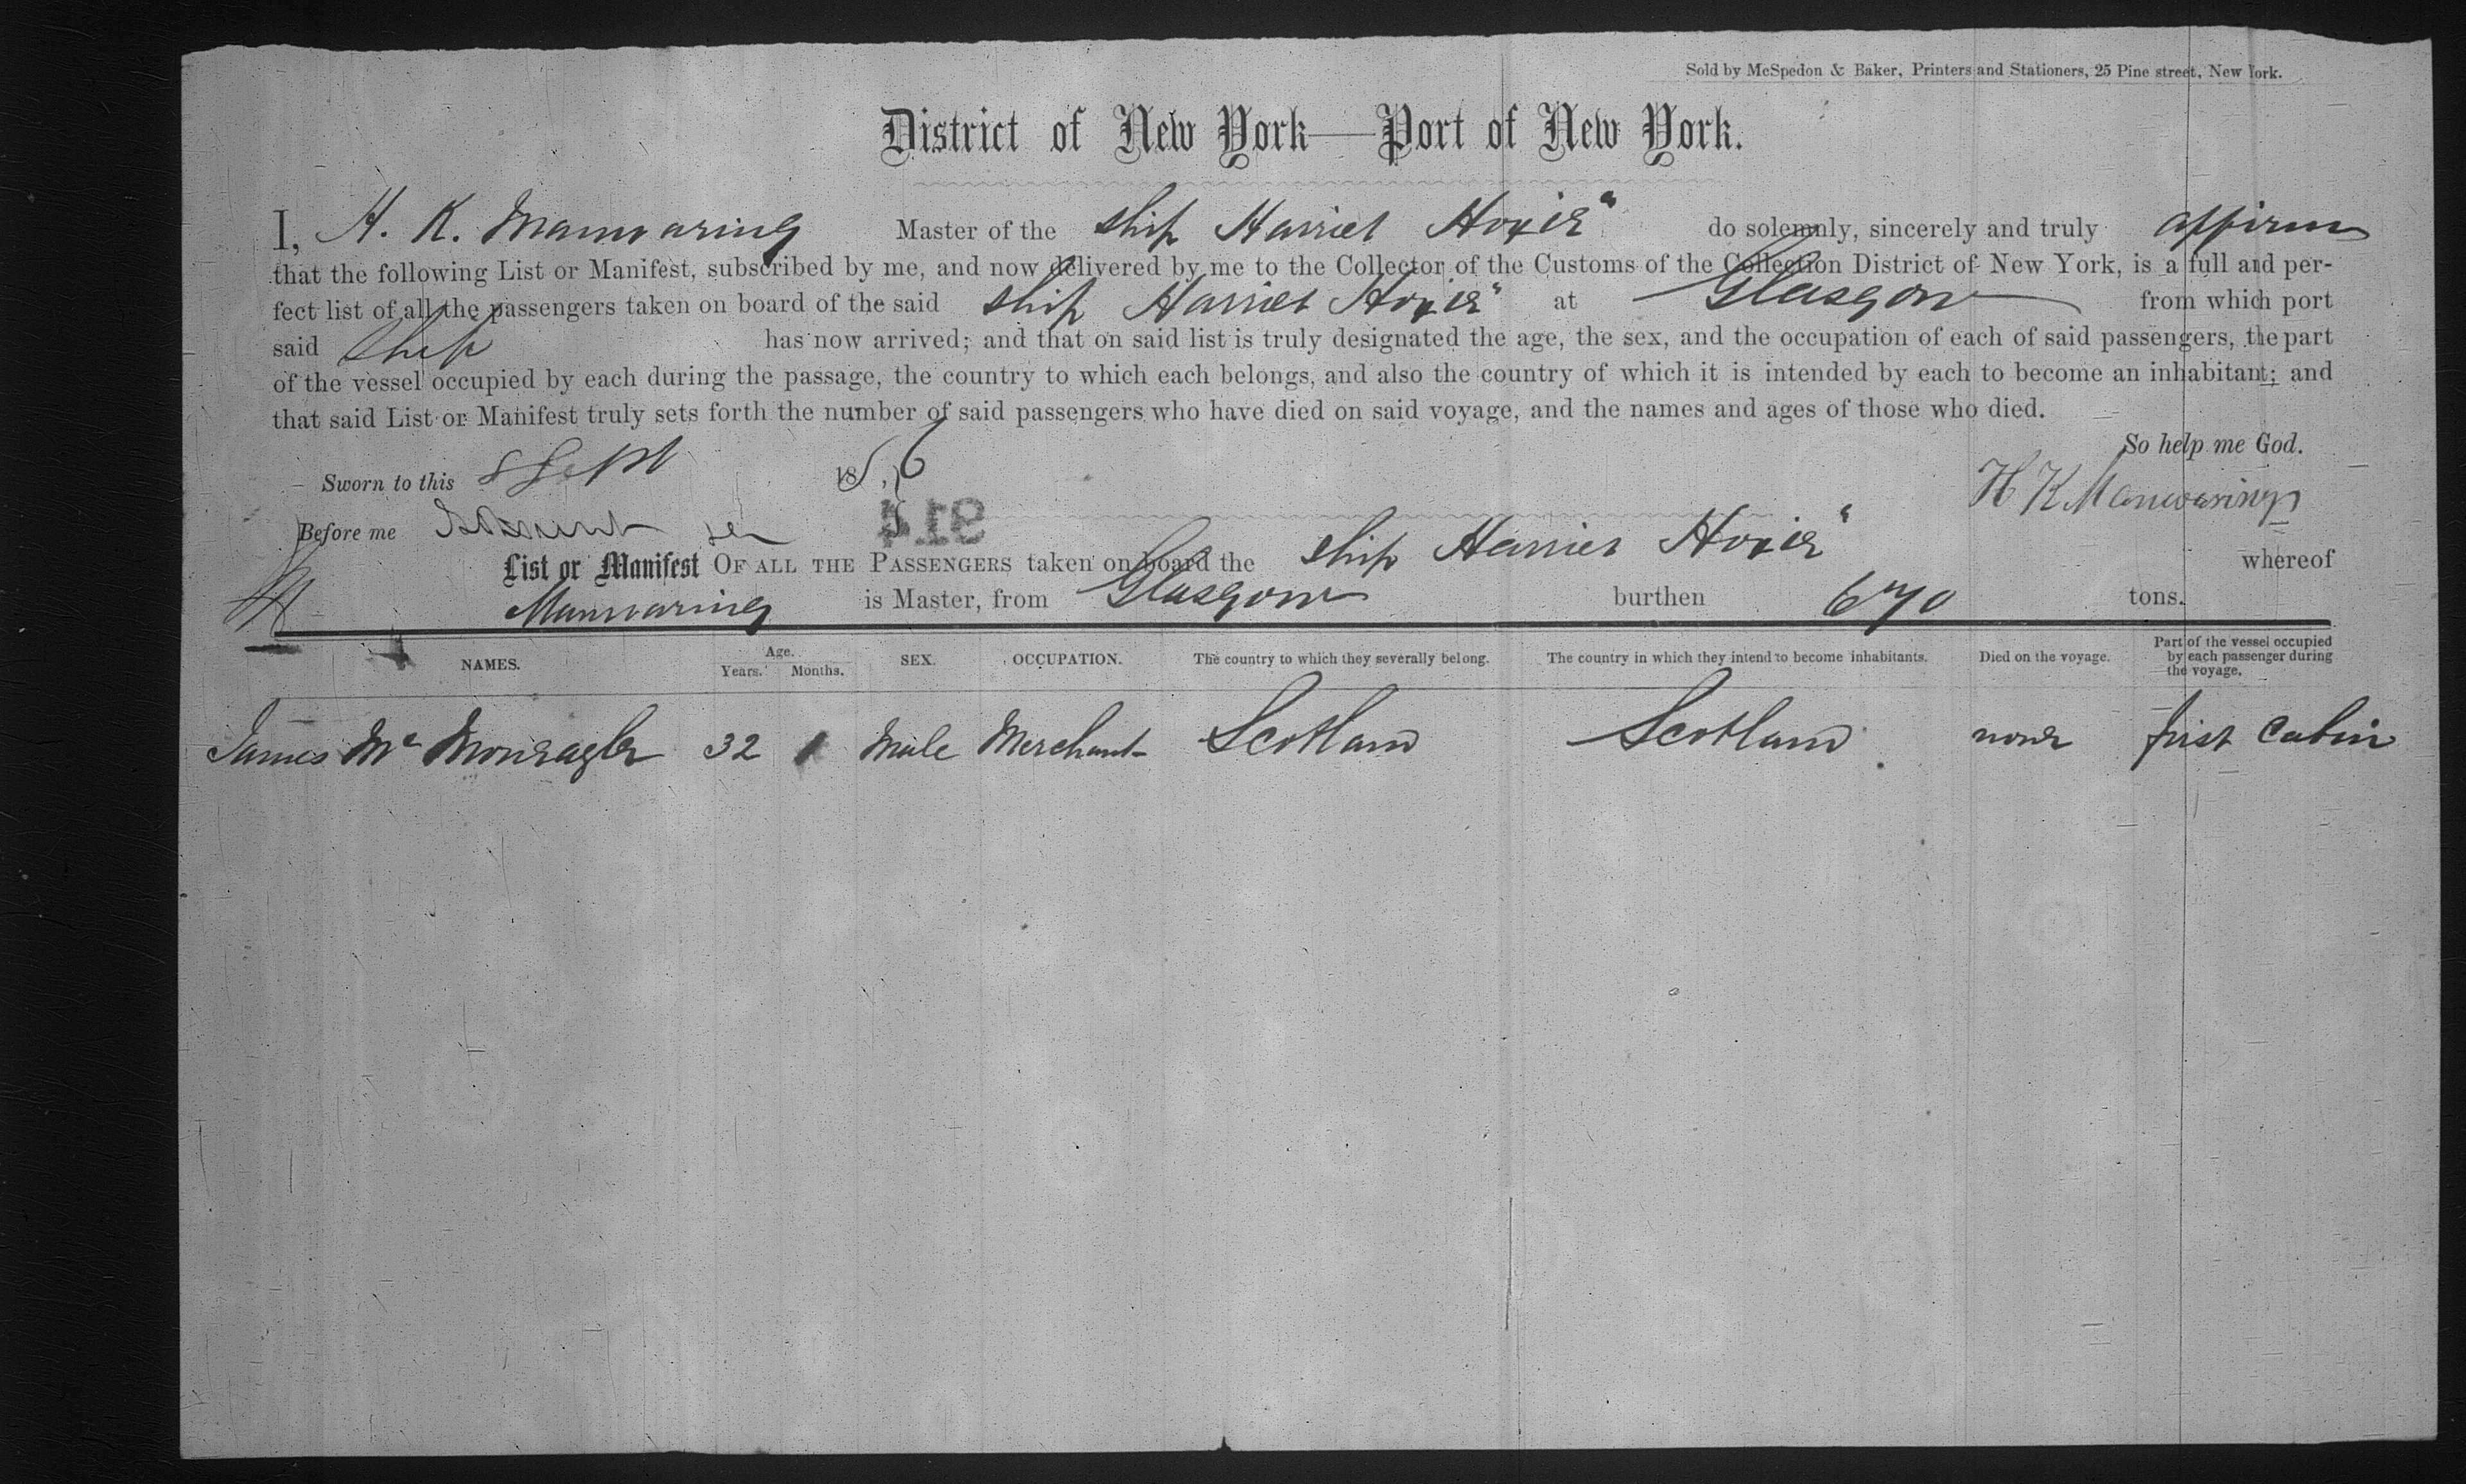 Sold by McSpedon & Baker, Printers and Stationers, 25 Pine street, New York.
District of New York—Port of New York.
I, H. K. Manwaring Master of the ship Harriet Hoxie" do solemnly, sincerely and truly affirm
that the following List or Manifest, subscribed by me, and now delivered by me to the Collector of the Customs of the Collection District of New York, is a full and per-
fect list of all the passengers taken on board of the said ship Harriet Hoxie" at Glasgow from which port
said Ship has now arrived; and that on said list is truly designated the age, the sex, and the occupation of each of said passengers, the part
of the vessel occupied by each during the passage, the country to which each belongs, and also the country of which it is intended by each to become an inhabitant; and
that said List or Manifest truly sets forth the number of said passengers who have died on said voyage, and the names and ages of those who died.
So help me God.
Sworn to this 8 Sept 1856
H K Manwaring
Before me
914
List or Manifest OF ALL THE PASSENGERS taken on board the ship Harriet Hoxie" whereof
Manwaring is Master, from Glasgow burthen 670 tons.
NAMES. Age. Years. Months. SEX. OCCUPATION. The country to which they severally belong. The country in which they intend to become inhabitants. Died on the voyage. Part of the vessel occupied by each passenger during the voyage.
James Mc 32 Male Merchant Scotland Scotland none first Cabin